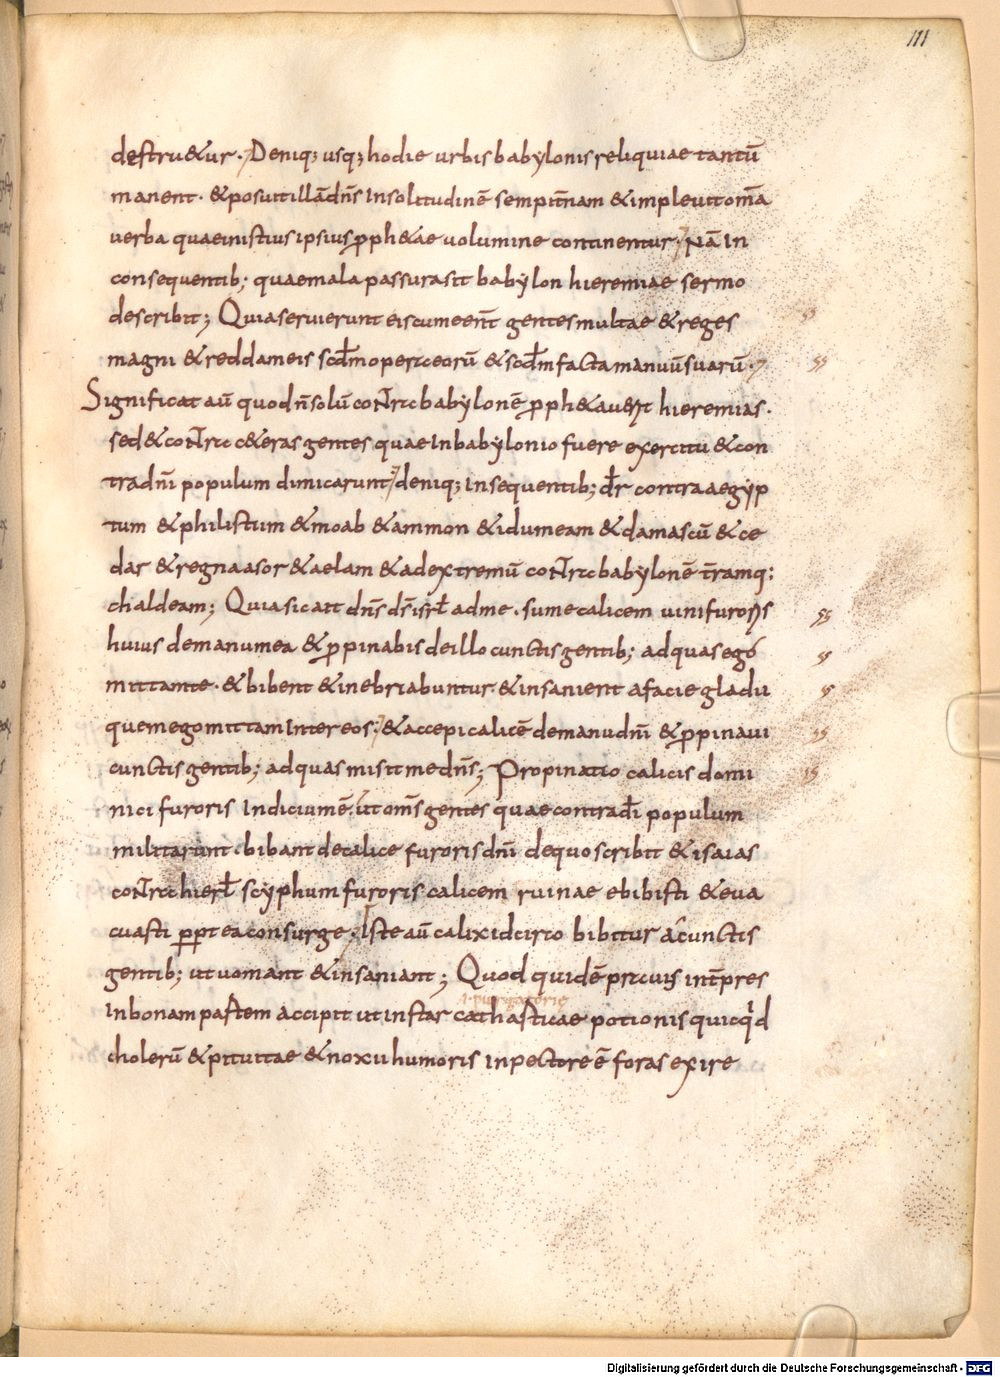 111
destru&ur. Deniq; usq; hodie urbis babylonis reliquiae tantū
manent. &posuit illā dn̄s Insolitudinē sempit̄nam &impleuit om̄a
uerba quae inistius ipsius pph&ae uolumine continentur. Nā In
consequentib; quae mala passura sit babylon hieremiae sermo
describit; Quia seruierunt eis cum eent̄ gentes multae & reges
magni & reddam eis scdm̄ opera eorū & scdm̄ facta manuū suarū.
Significat aū quod n̄ solū contra babylonē pph&auerit hieremias.
sed & contra c&eras gentes quae In babylonio fuere exercitu & con
tra dn̄i populum dimicarunt deniq; Insequentib; dr̄ contra aegyp
tum & philistium & moab & ammon & idumeam & damascū & ce
dar & regna asor & aelam & ad extremū contra babylonē t̄ramq;
chaldeam; Quia sic ait dn̄s ds̄ isrl̄ ad me. sume calicem uini furoris
huius de manu mea & ppinabis de illo cunctis gentib; ad quas ego
mittam te. & bibent & inebriabuntur & insanient a facie gladii
quem ego mittam Inter eos. & accepi calicē de manu dn̄i & ppinaui
cunctis gentib; ad quas misit me dn̄s; Propinatio calicis domi
nici furoris Indicium ē. ut om̄s gentes quae contra dī populum
militarunt. bibant de calice furoris dn̄i de quo scribit & isaias
contra hierl̄ scyphum furoris calicem ruinae ebibisti & eua
cuasti ppt ea consurge. Iste aū calix idcirco bibitur a cunctis
gentib; ut uomant & insaniant; Quod quidē prauus int̄pres
.i. purgatorie
In bonam partem accipit ut instar catharticae potionis quicqd
cholerū & pituitae & noxii humoris in pectore ē foras exire
Digitalisierung gefördert durch die Deutsche Forschungsgemeinschaft - DFG